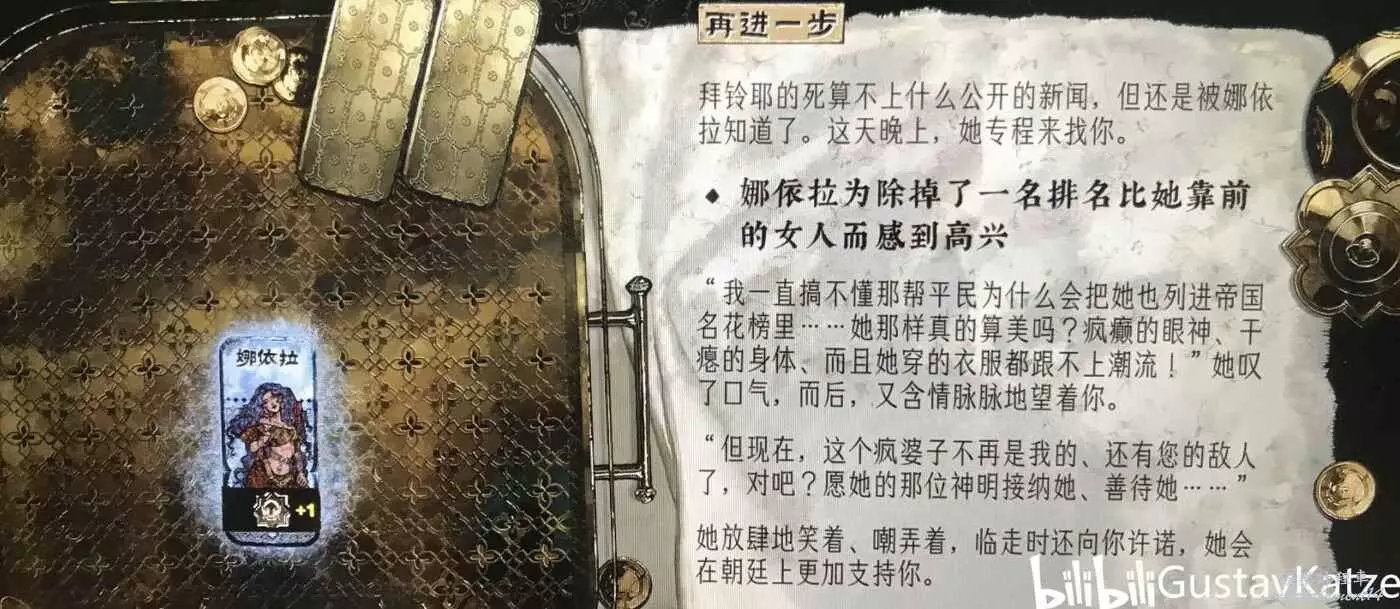 再进一步
拜铃耶的死算不上什么公开的新闻，但还是被娜依
拉知道了。这天晚上，她专程来找你。
◆ 娜依拉为除掉了一名排名比她靠前
的女人而感到高兴
“我一直搞不懂那帮平民为什么会把她也列进帝国
名花榜里……她那样真的算美吗？疯癫的眼神、干
瘪的身体、而且她穿的衣服都跟不上潮流！”她叹
了口气，而后，又含情脉脉地望着你。
“但现在，这个疯婆子不再是我的、还有您的敌人
了，对吧？愿她的那位神明接纳她、善待她……”
她放肆地笑着、嘲弄着，临走时还向你许诺，她会
在朝廷上更加支持你。
娜依拉
+1
bilibili GustavKatze